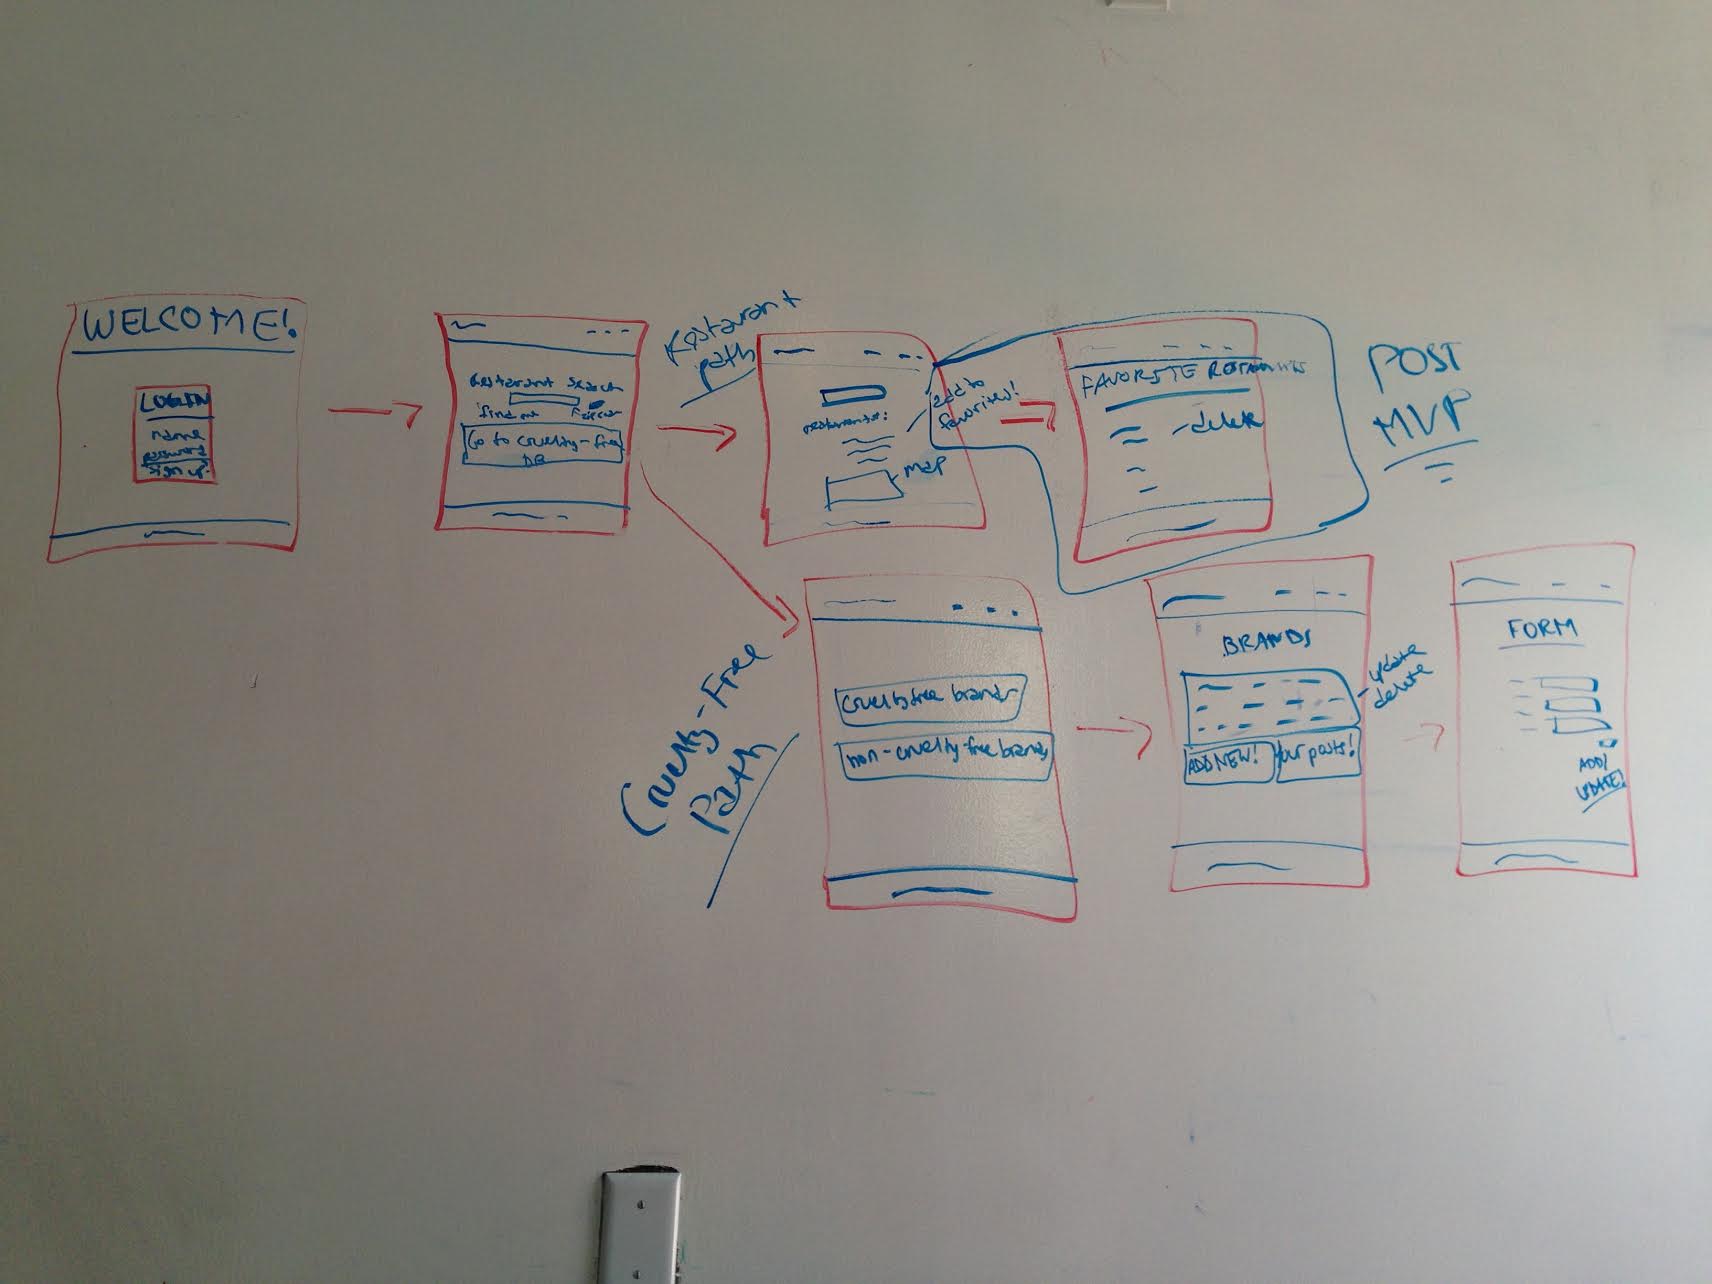 WELCOME!
LOGIN
name
password
sign up?
Restaurant Search
Go to cruelty-free
DB
restaurant
path
restaurants:
add to
favorites!
map
FAVORITE
- delete
POST
MVP
Cruelty-Free
Path
cruelty free brands
non-cruelty-free brands
BRANDS
- update
delete
ADD NEW!
your posts!
FORM
ADD/
UPDATE!